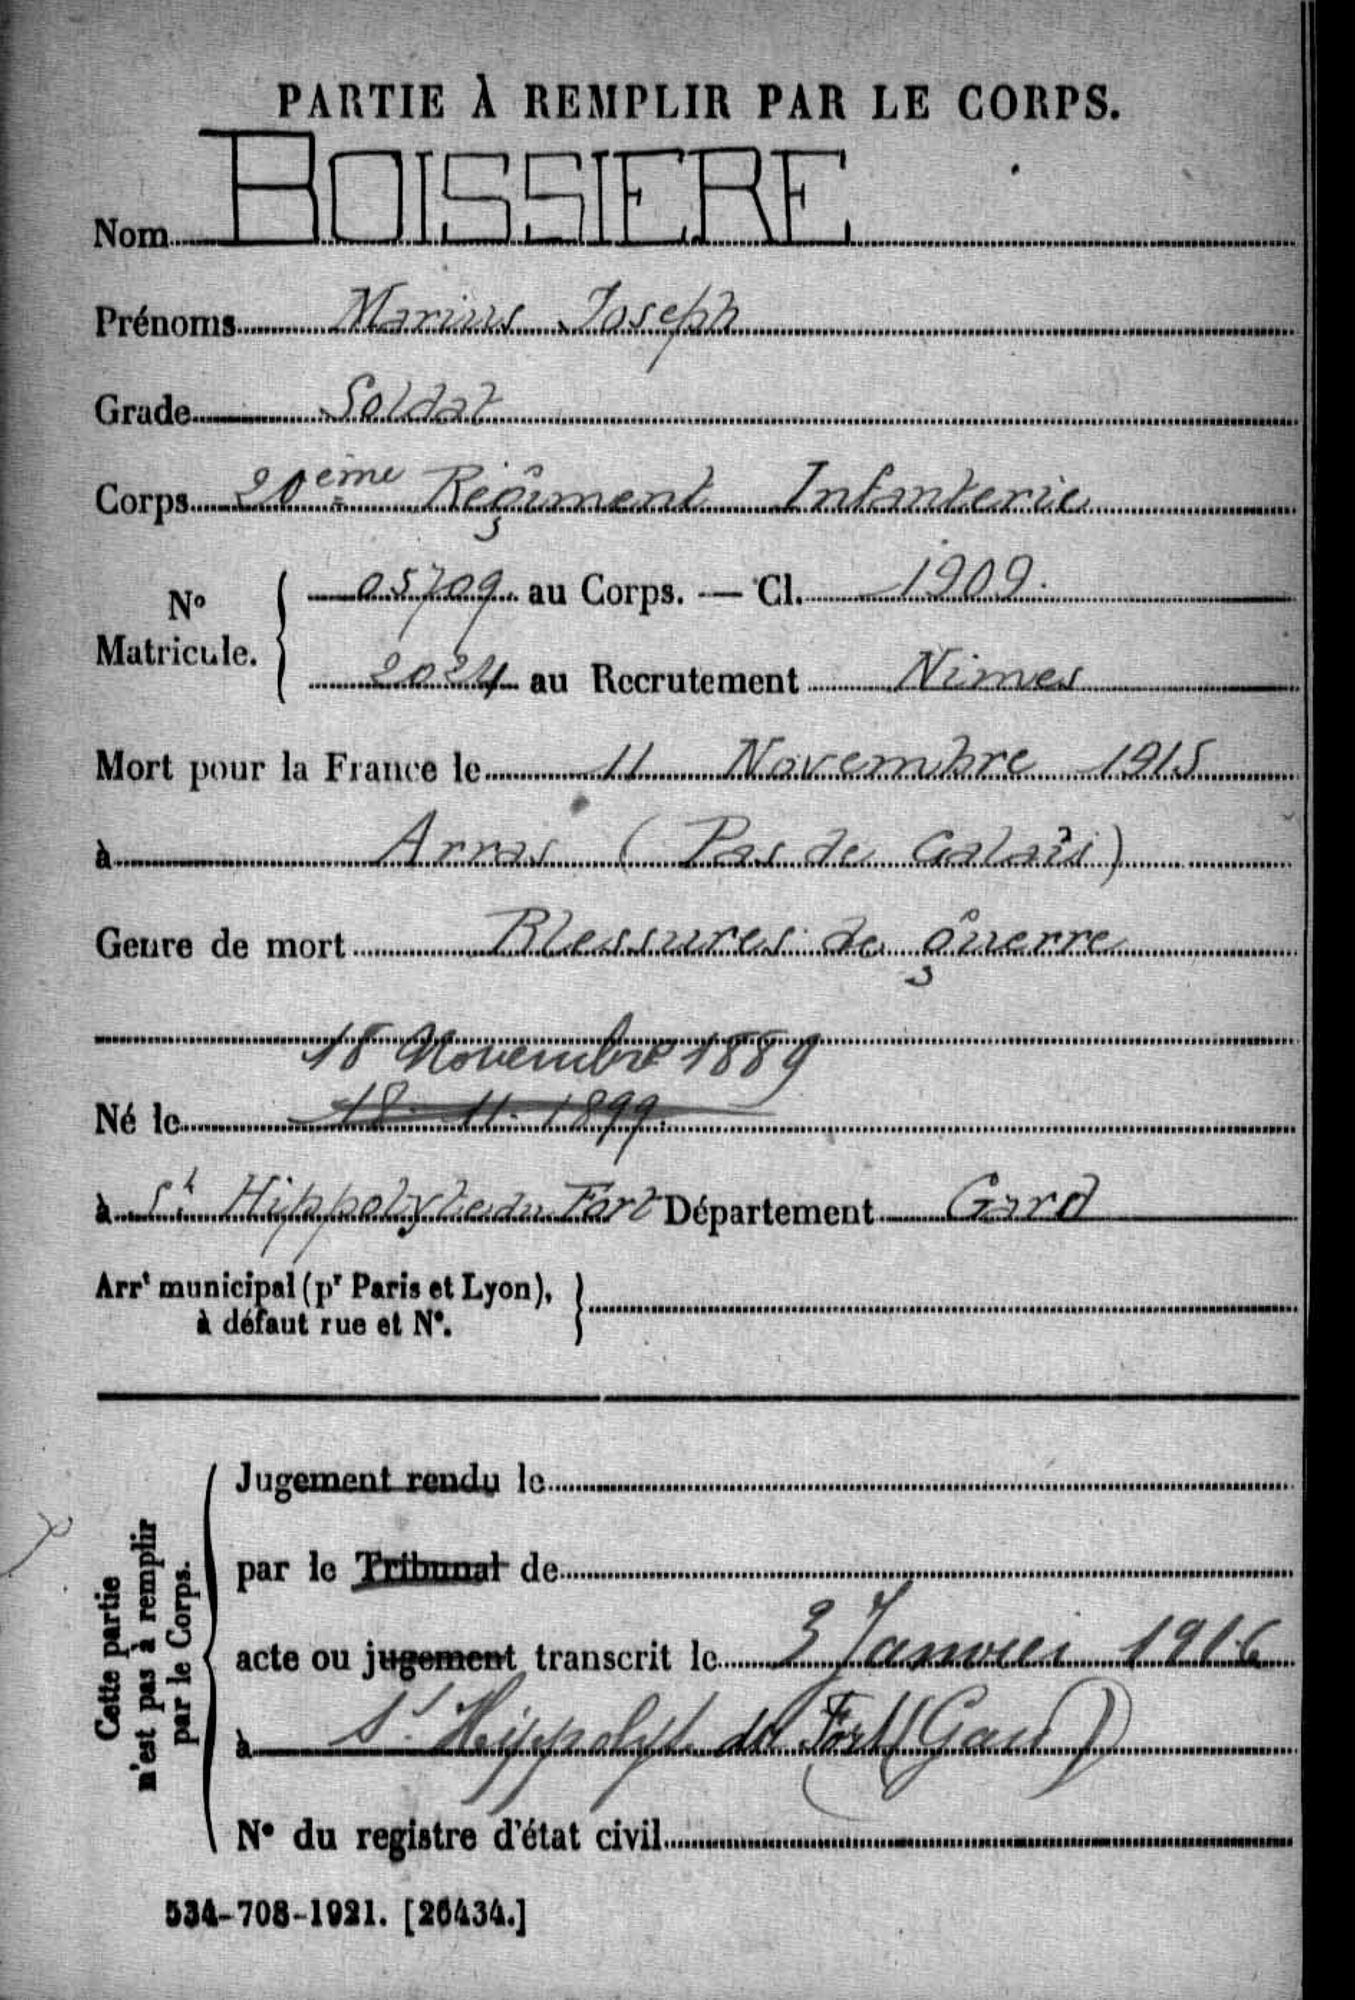 PARTIE À REMPLIR PAR LE CORPS.
Nom BOISSIERE
Prénoms Marius Joseph
Grade Soldat
Corps 20ème Régiment Infanterie
N° Matricule. { 05709. au Corps. — Cl. 1909.
2024 au Recrutement Nimes
Mort pour la France le 11 Novembre 1915
à Arras (Pas de Calais)
Genre de mort Blessures de guerre
18 Novembre 1889
Né le 18-11-1899.
à St Hippolyte du Fort Département Gard
Arrt municipal (pr Paris et Lyon), à défaut rue et N°. }
Cette partie n'est pas à remplir par le Corps.
Jugement rendu le
par le Tribunal de
acte ou jugement transcrit le 3 Janvier 1916
à St Hippolyt. du Fort (Gard)
N° du registre d'état civil
534-708-1921. [26434.]